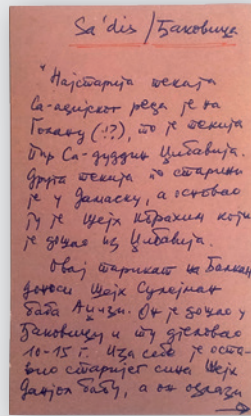 Sa'dis / Ђаковица
"Најстарија текија
Са-адијског реда је на
Голану (!?), то је текија
Пир Са-дуддин Џибавија.
Друга текија по старини
је у Дамаску, а основао
ју је шејх Ибрахим који
је дошао из Џибавија.
Овај тарикат на Балкан
доноси шејх Сулејман
баба Аџизи. Он је дошао у
Ђаковицу и ту дјеловао
10-15 г. Иза себе је оста-
вио старијег сина шејх
Данјол бабу, а он одлази